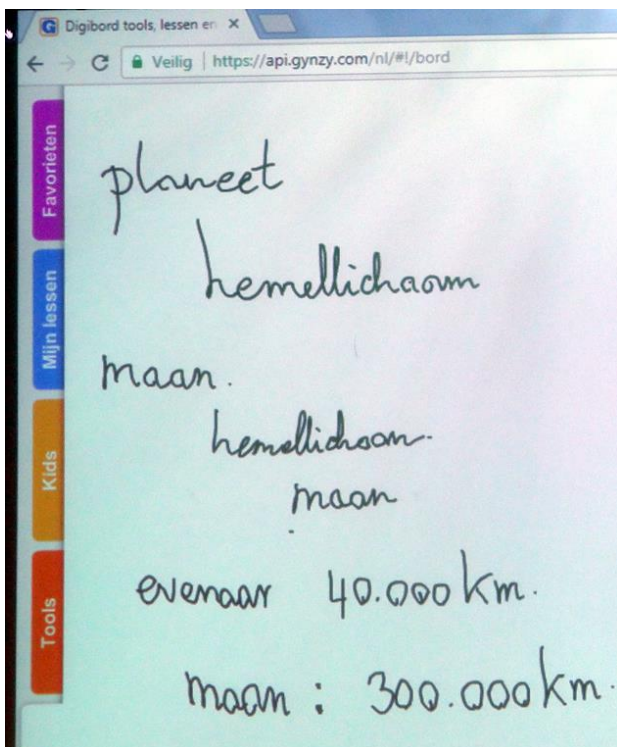 Digibord tools, lessen en
Veilig | https://api.gynzy.com/nl/#!/bord
Favorieten
Mijn lessen
Kids
Tools
planeet
hemellichaam
maan.
hemellichaam.
maan
evenaar 40.000 km.
maan : 300.000 km.